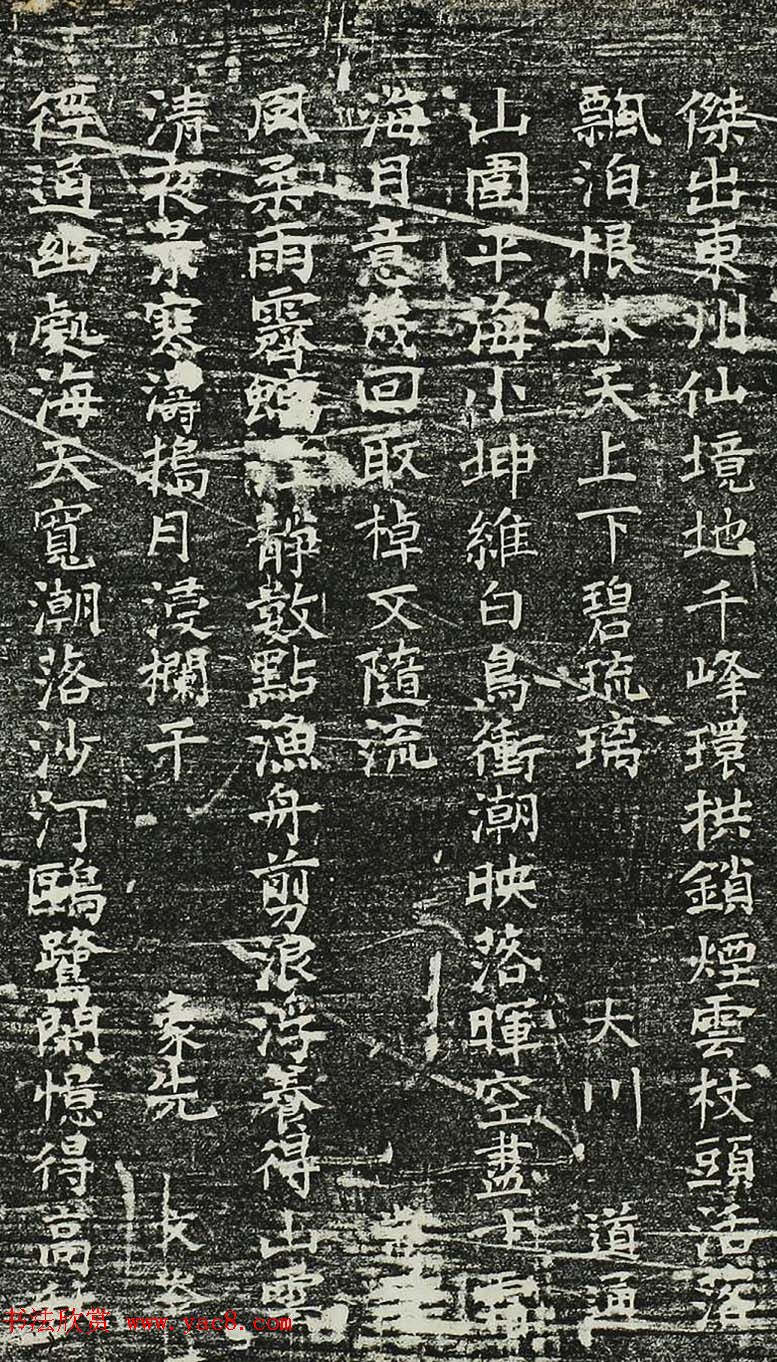 傑出東州仙境地千峰環拱鎖煙雲杖頭活落
飄泊根水天上下碧琉璃 大川 道通
山圍平海小坤維白鳥衝潮映落暉空盡
海月意幾回取棹又隨流
風柔雨霽靜數點漁舟剪浪浮養得山雲
清夜景寒濤搗月浸欄干 象先
徑通幽處海天寬潮落沙汀鷗鷺閑憶得高
书法欣赏 www.yac8.com